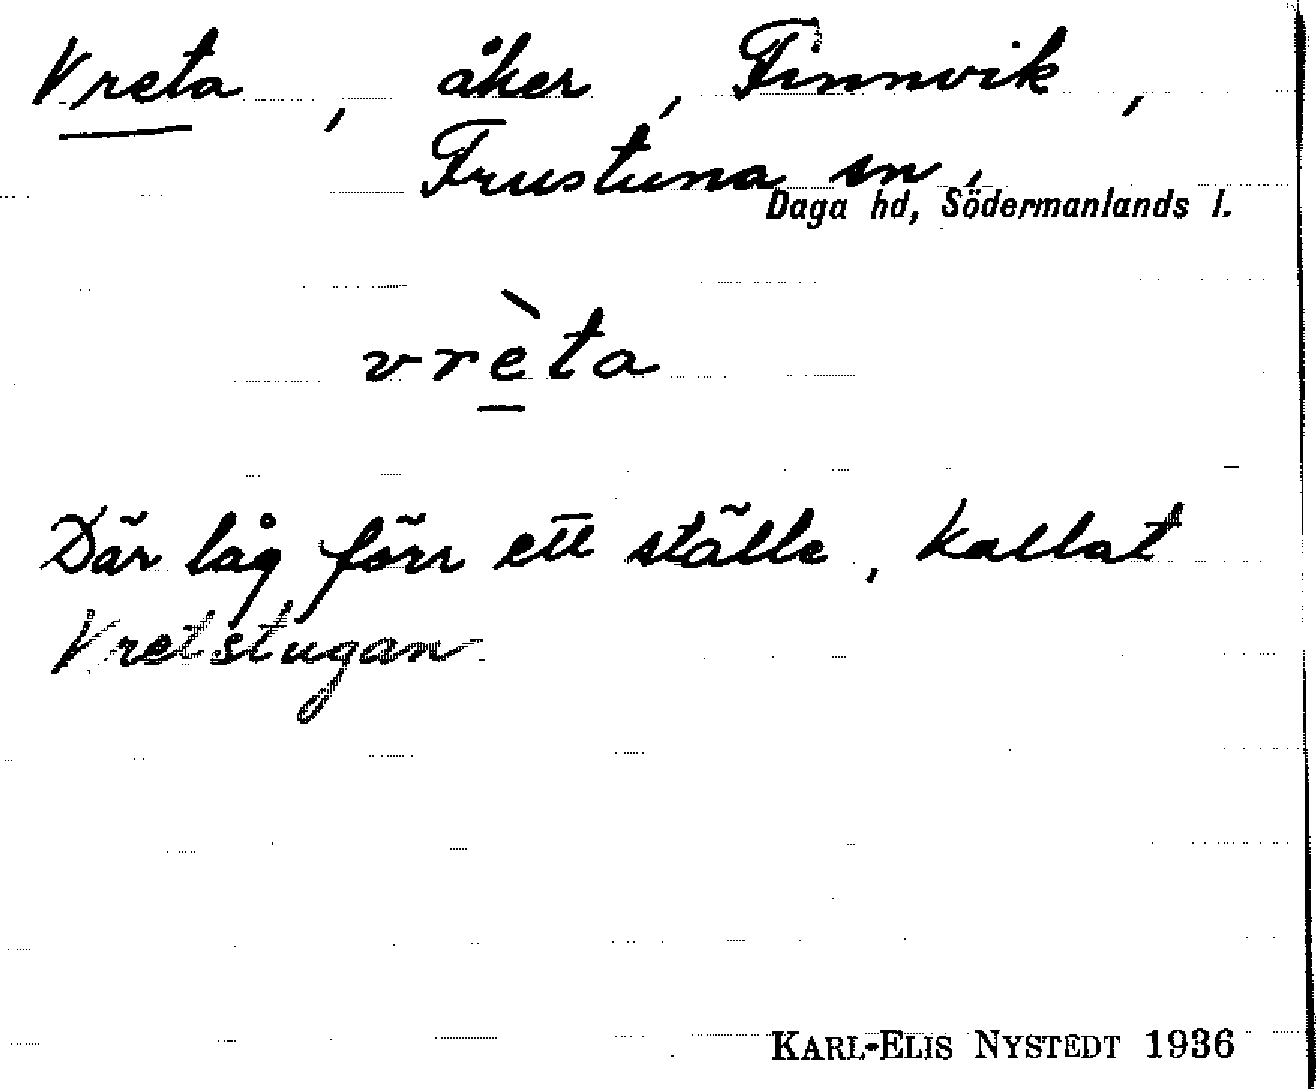 Vreta, åker, Finnvik,
Frustuna sn,
Daga hd, Södermanlands l.
vrèta
Där låg förr ett ställe, kallat
Vretstugan
KARL-ELIS NYSTEDT 1936